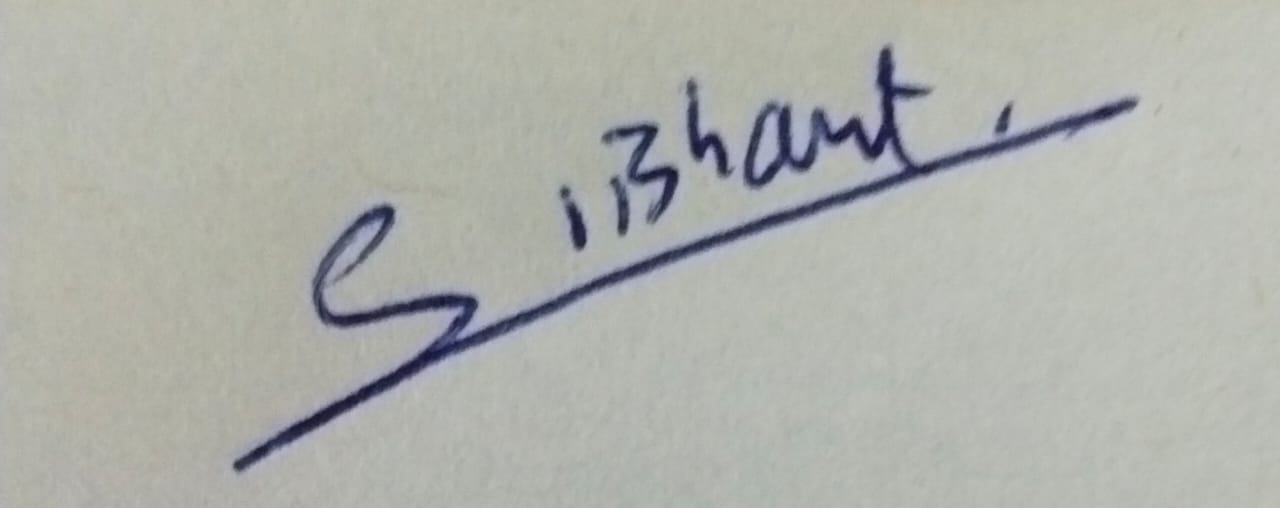 S iiBhant.